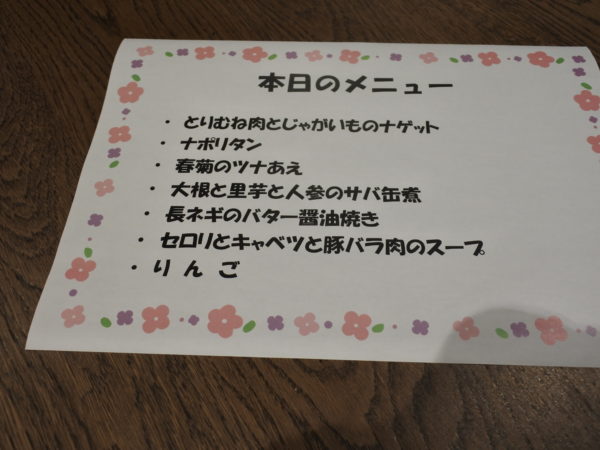 本日のメニュー
・ とりむね肉とじゃがいものナゲット
・ ナポリタン
・ 春菊のツナあえ
・ 大根と里芋と人参のサバ缶煮
・ 長ネギのバター醤油焼き
・ セロリとキャベツと豚バラ肉のスープ
・ り ん ご